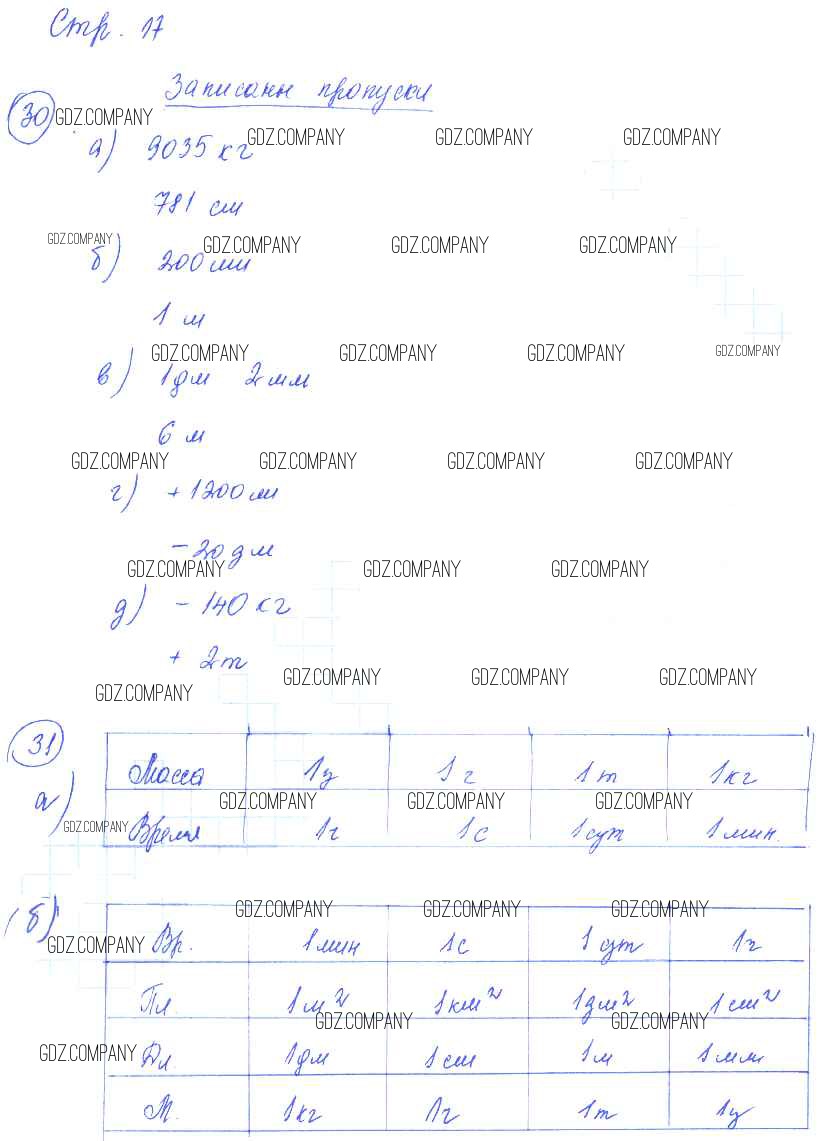 Стр. 17
Записаны пропуски
30 GDZ.COMPANY
а) 9035 кг GDZ.COMPANY GDZ.COMPANY GDZ.COMPANY
781 см
GDZ.COMPANY GDZ.COMPANY GDZ.COMPANY GDZ.COMPANY
б) 200 мм
1 м
GDZ.COMPANY GDZ.COMPANY GDZ.COMPANY GDZ.COMPANY
в) 1 дм 2 мм
6 м
GDZ.COMPANY GDZ.COMPANY GDZ.COMPANY GDZ.COMPANY
г) + 1200 мм
- 20 дм
GDZ.COMPANY GDZ.COMPANY GDZ.COMPANY
д) - 140 кг
+ 2 т
GDZ.COMPANY GDZ.COMPANY GDZ.COMPANY GDZ.COMPANY
31
а) Масса 1 ц 1 г 1 т 1 кг
GDZ.COMPANY GDZ.COMPANY GDZ.COMPANY
GDZ.COMPANY Время 1 ч 1 с 1 сут 1 мин.
GDZ.COMPANY GDZ.COMPANY GDZ.COMPANY
б) Вр. 1 мин 1 с 1 сут 1 ч
GDZ.COMPANY
Пл. 1 м² 1 км² 1 дм² 1 см²
GDZ.COMPANY GDZ.COMPANY
GDZ.COMPANY Дл. 1 дм 1 см 1 м 1 мм
М. 1 кг 1 г 1 т 1 ц